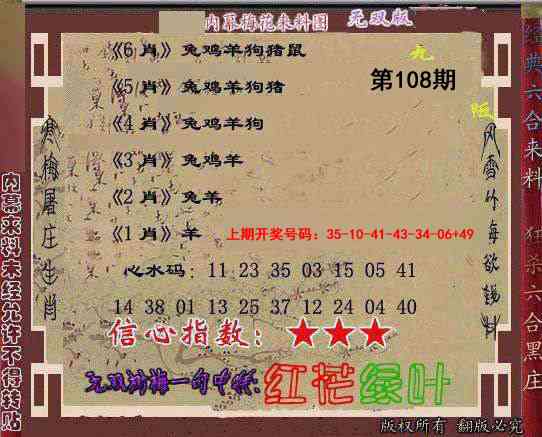 内幕梅花来料图 无双版
《6 肖》兔鸡羊狗猪鼠
九
《5 肖》兔鸡羊狗猪
第108期
《4 肖》兔鸡羊狗
《3 肖》兔鸡羊
《2 肖》兔羊
《1 肖》羊
上期开奖号码：35-10-41-43-34-06+49
心水码：11 23 35 03 15 05 41
14 38 01 13 25 37 12 24 04 40
信心指数：★★★
红花绿叶
内幕来料未经允许不得转贴
经典六合来料 狂杀六合黑庄
版权所有 翻版必究